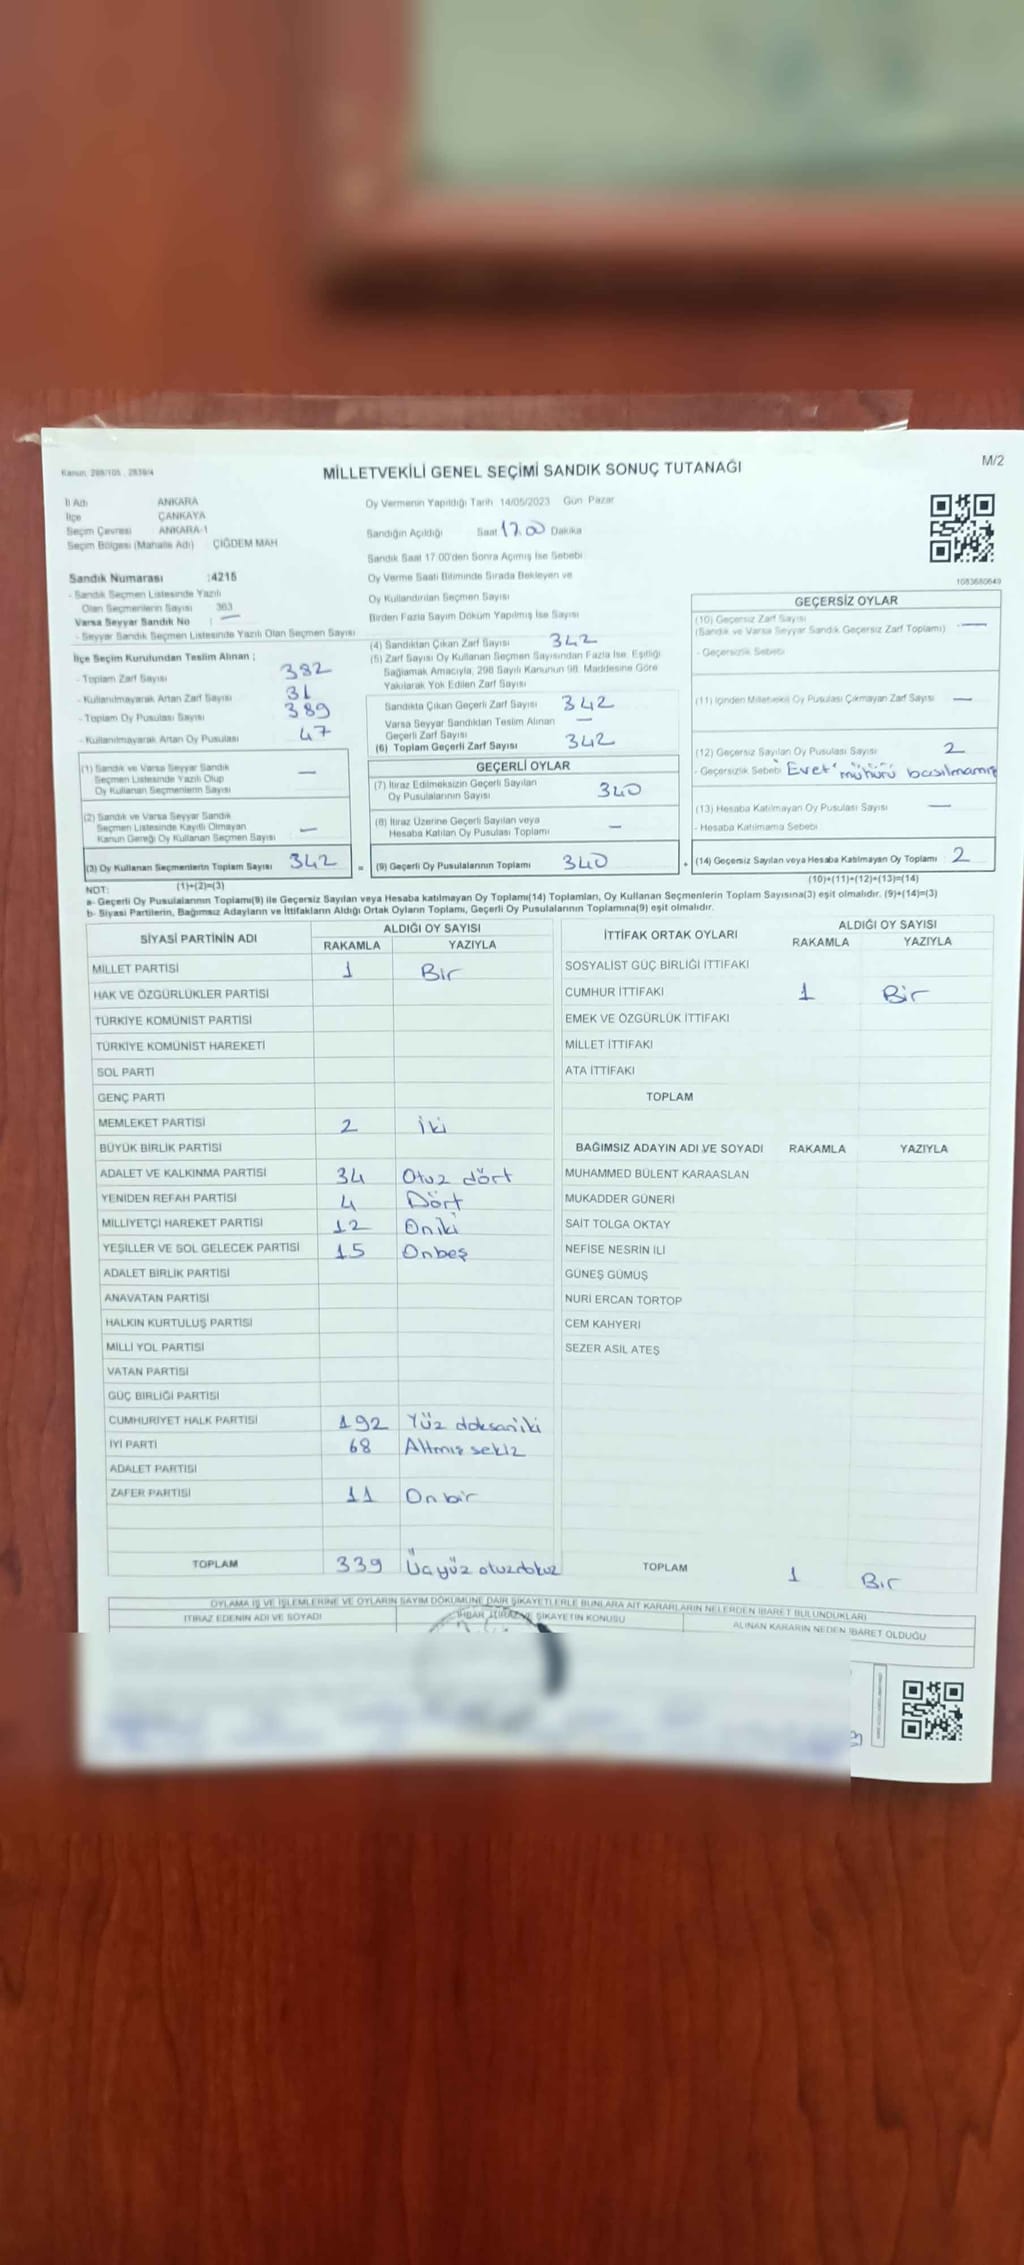 Kanun: 298/105 , 2839/4
MİLLETVEKİLİ GENEL SEÇİMİ SANDIK SONUÇ TUTANAĞI
M/2
İl Adı ANKARA
İlçe ÇANKAYA
Seçim Çevresi ANKARA-1
Seçim Bölgesi (Mahalle Adı) ÇİĞDEM MAH
Sandık Numarası :4215
- Sandık Seçmen Listesinde Yazılı
Olan Seçmenlerin Sayısı 363
Varsa Seyyar Sandık No : —
- Seyyar Sandık Seçmen Listesinde Yazılı Olan Seçmen Sayısı
İlçe Seçim Kurulundan Teslim Alınan ;
- Toplam Zarf Sayısı 382
- Kullanılmayarak Artan Zarf Sayısı 31
- Toplam Oy Pusulası Sayısı 389
- Kullanılmayarak Artan Oy Pusulası 47
(1) Sandık ve Varsa Seyyar Sandık
Seçmen Listesinde Yazılı Olup
Oy Kullanan Seçmenlerin Sayısı —
(2) Sandık ve Varsa Seyyar Sandık
Seçmen Listesinde Kayıtlı Olmayan
Kanun Gereği Oy Kullanan Seçmen Sayısı —
(3) Oy Kullanan Seçmenlerin Toplam Sayısı 342 =
(1)+(2)=(3)
Oy Vermenin Yapıldığı Tarih 14/05/2023 Gün Pazar
Sandığın Açıldığı Saat 17.00 Dakika
Sandık Saat 17:00'den Sonra Açımış İse Sebebi
Oy Verme Saati Bitiminde Sırada Bekleyen ve
Oy Kullandırılan Seçmen Sayısı
Birden Fazla Sayım Döküm Yapılmış İse Sayısı
(4) Sandıktan Çıkan Zarf Sayısı 342
(5) Zarf Sayısı Oy Kullanan Seçmen Sayısından Fazla İse, Eşitliği
Sağlamak Amacıyla, 298 Sayılı Kanunun 98. Maddesine Göre
Yakılarak Yok Edilen Zarf Sayısı
Sandıkta Çıkan Geçerli Zarf Sayısı 342
Varsa Seyyar Sandıktan Teslim Alınan
Geçerli Zarf Sayısı —
(6) Toplam Geçerli Zarf Sayısı 342
GEÇERLİ OYLAR
(7) İtiraz Edilmeksizin Geçerli Sayılan
Oy Pusulalarının Sayısı 340
(8) İtiraz Üzerine Geçerli Sayılan veya
Hesaba Katılan Oy Pusulası Toplamı —
(9) Geçerli Oy Pusulalarının Toplamı 340 +
1083680649
GEÇERSİZ OYLAR
(10) Geçersiz Zarf Sayısı
(Sandık ve Varsa Seyyar Sandık Geçersiz Zarf Toplamı) —
- Geçersizlik Sebebi
(11) İçinden Milletvekili Oy Pusulası Çıkmayan Zarf Sayısı —
(12) Geçersiz Sayılan Oy Pusulası Sayısı 2
- Geçersizlik Sebebi 'Evet' mühürü basılmamış
(13) Hesaba Katılmayan Oy Pusulası Sayısı —
- Hesaba Katılmama Sebebi
(14) Geçersiz Sayılan veya Hesaba Katılmayan Oy Toplamı 2
(10)+(11)+(12)+(13)=(14)
NOT:
a- Geçerli Oy Pusulalarının Toplamı(9) ile Geçersiz Sayılan veya Hesaba katılmayan Oy Toplamı(14) Toplamları, Oy Kullanan Seçmenlerin Toplam Sayısına(3) eşit olmalıdır. (9)+(14)=(3)
b- Siyasi Partilerin, Bağımsız Adayların ve İttifakların Aldığı Ortak Oyların Toplamı, Geçerli Oy Pusulalarının Toplamına(9) eşit olmalıdır.
SİYASİ PARTİNİN ADI ALDIĞI OY SAYISI
RAKAMLA YAZIYLA
MİLLET PARTİSİ 1 Bir
HAK VE ÖZGÜRLÜKLER PARTİSİ
TÜRKİYE KOMÜNİST PARTİSİ
TÜRKİYE KOMÜNİST HAREKETİ
SOL PARTİ
GENÇ PARTİ
MEMLEKET PARTİSİ 2 İki
BÜYÜK BİRLİK PARTİSİ
ADALET VE KALKINMA PARTİSİ 34 Otuz dört
YENİDEN REFAH PARTİSİ 4 Dört
MİLLİYETÇİ HAREKET PARTİSİ 12 Oniki
YEŞİLLER VE SOL GELECEK PARTİSİ 15 Onbeş
ADALET BİRLİK PARTİSİ
ANAVATAN PARTİSİ
HALKIN KURTULUŞ PARTİSİ
MİLLİ YOL PARTİSİ
VATAN PARTİSİ
GÜÇ BİRLİĞİ PARTİSİ
CUMHURİYET HALK PARTİSİ 192 Yüz doksaniki
İYİ PARTİ 68 Altmış sekiz
ADALET PARTİSİ
ZAFER PARTİSİ 11 On bir
TOPLAM 339 Üçyüz otuzdokuz
İTTİFAK ORTAK OYLARI ALDIĞI OY SAYISI
RAKAMLA YAZIYLA
SOSYALİST GÜÇ BİRLİĞİ İTTİFAKI
CUMHUR İTTİFAKI 1 Bir
EMEK VE ÖZGÜRLÜK İTTİFAKI
MİLLET İTTİFAKI
ATA İTTİFAKI
TOPLAM
BAĞIMSIZ ADAYIN ADI VE SOYADI RAKAMLA YAZIYLA
MUHAMMED BÜLENT KARAASLAN
MUKADDER GÜNERİ
SAİT TOLGA OKTAY
NEFİSE NESRİN İLİ
GÜNEŞ GÜMÜŞ
NURİ ERCAN TORTOP
CEM KAHYERİ
SEZER ASIL ATEŞ
TOPLAM 1 Bir
OYLAMA İŞ VE İŞLEMLERİNE VE OYLARIN SAYIM DÖKÜMÜNE DAİR ŞİKAYETLERLE BUNLARA AİT KARARLARIN NELERDEN İBARET BULUNDUKLARI
İTİRAZ EDENİN ADI VE SOYADI İHBAR, İTİRAZ VE ŞİKAYETİN KONUSU ALINAN KARARIN NEDEN İBARET OLDUĞU